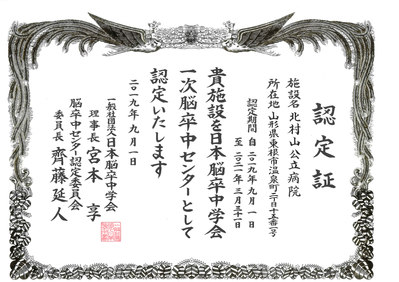 認定証
施設名 北村山公立病院
所在地 山形県東根市温泉町二丁目十五番一号
認定期間 自 二〇一九年九月一日
至 二〇二一年三月三十一日
貴施設を日本脳卒中学会
一次脳卒中センターとして
認定いたします
二〇一九年九月一日
一般社団法人日本脳卒中学会
理事長 宮本 享
脳卒中センター認定委員会
委員長 齊藤延人